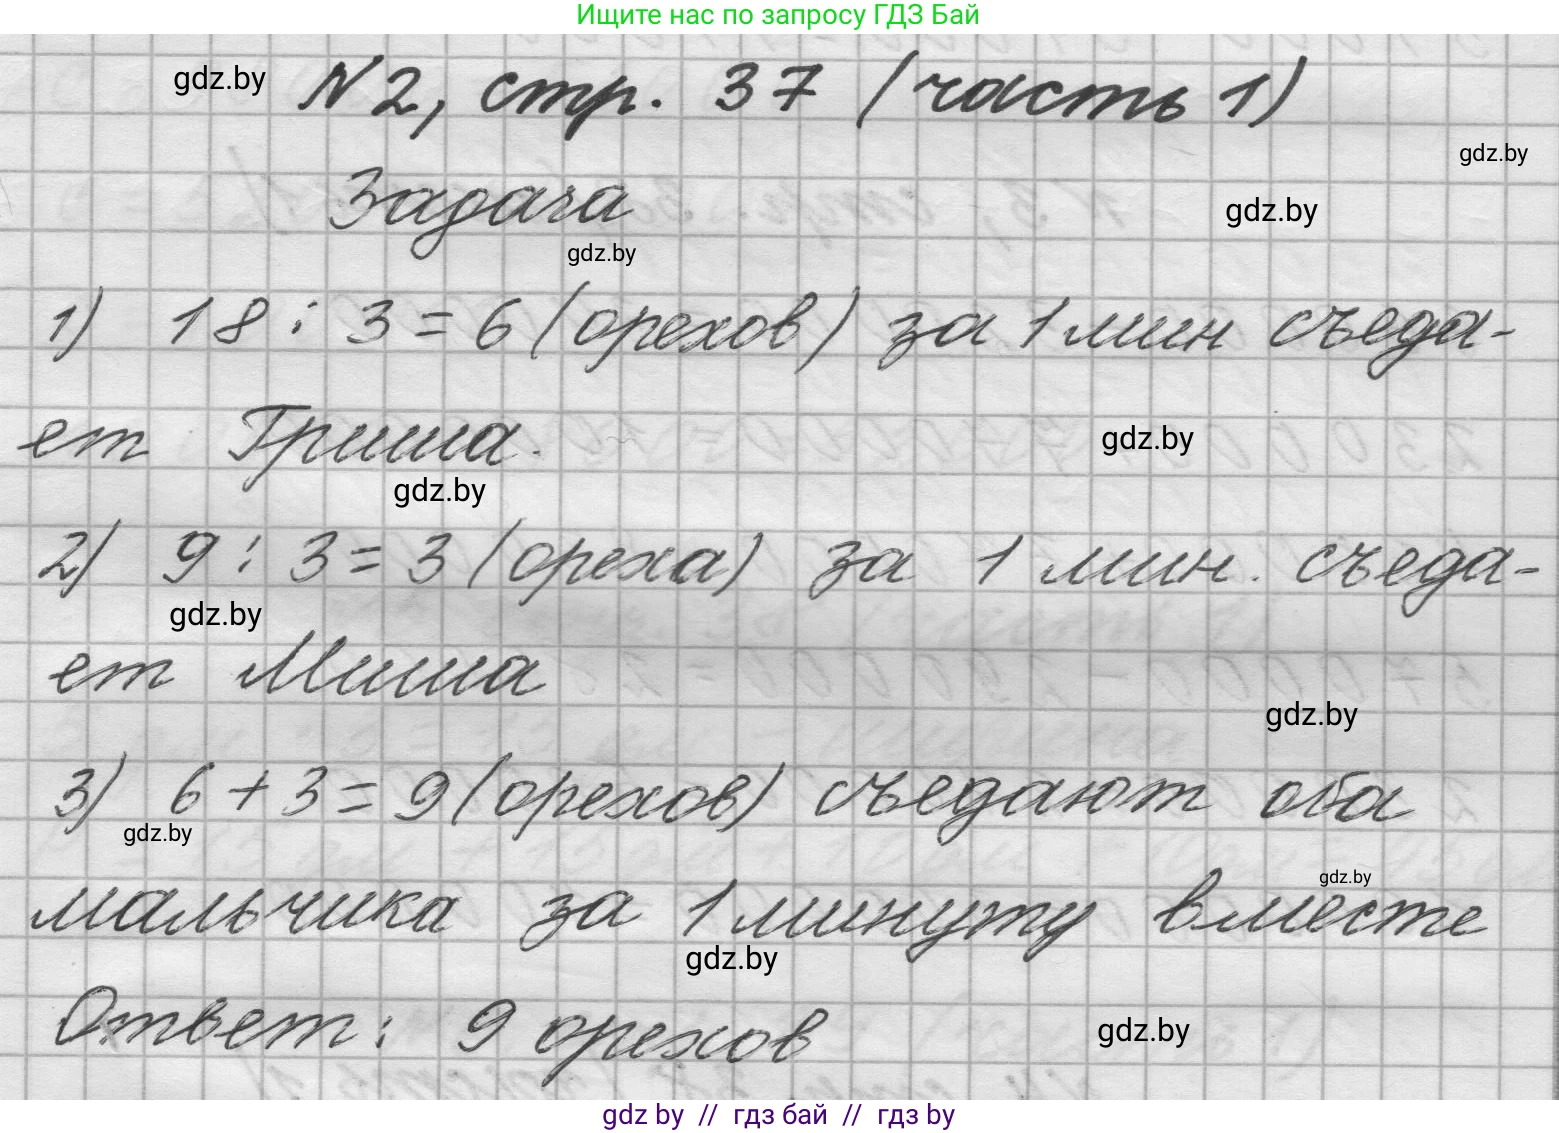 Ищите нас по запросу ГДЗ Бай
gdz.by
N2, стр. 37 (часть 1)
gdz.by
Задача
gdz.by
gdz.by
1) 18 : 3 = 6 (орехов) за 1 мин съеда-
ет Гриша.
gdz.by
gdz.by
2) 9 : 3 = 3 (ореха) за 1 мин. съеда-
gdz.by
ет Миша
gdz.by
3) 6 + 3 = 9 (орехов) съедают оба
gdz.by
gdz.by
мальчика за 1 минуту вместе
gdz.by
Ответ: 9 орехов
gdz.by
gdz by // гдз бай // гдз by